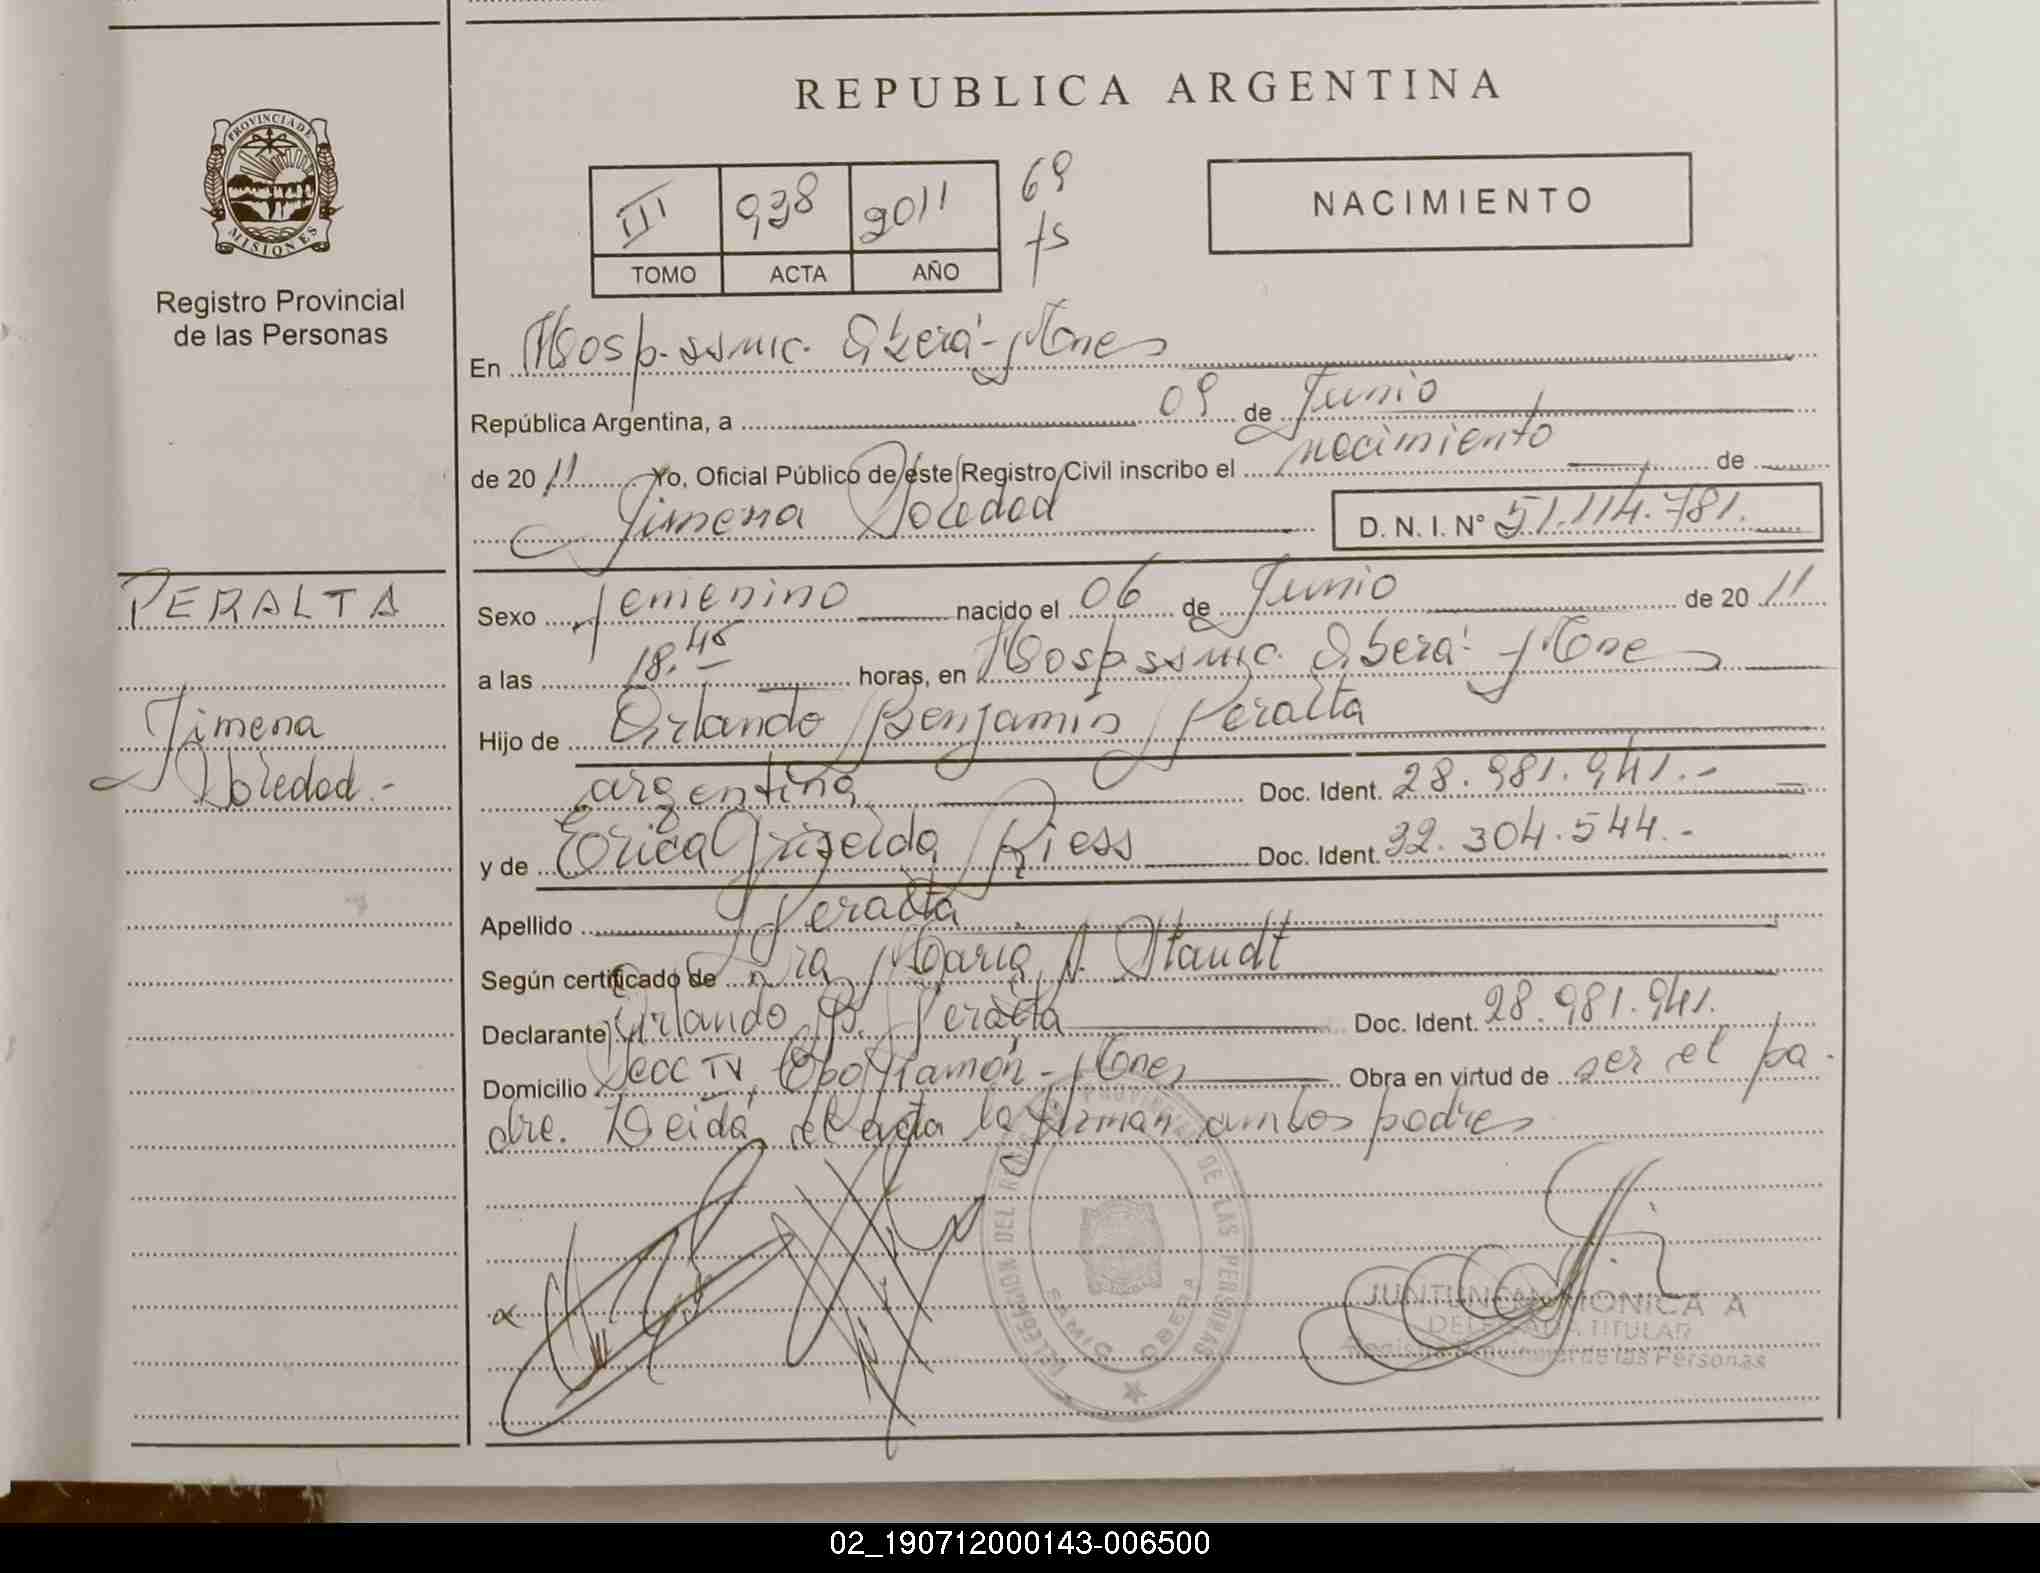 REPUBLICA ARGENTINA
PROVINCIA DE
MISIONES
Registro Provincial
de las Personas
III 938 2011 69
TOMO ACTA AÑO fs
NACIMIENTO
En Hosp. ssmic. Oberá - Mnes
República Argentina, a 09 de Junio
de 2011 Yo, Oficial Público de este Registro Civil inscribo el nacimiento de
Jimena Soledad D. N. I. N° 51.114.781.
PERALTA
Jimena
Soledad.-
Sexo femenino nacido el 06 de Junio de 2011
a las 18.45 horas, en Hosp. ssmic. Oberá - Mnes
Hijo de Orlando Benjamín Peralta
argentina Doc. Ident. 28.981.941.-
y de Erica Griselda Riess Doc. Ident. 32.304.544.-
Apellido Peralta
Según certificado de Dra María A. Staudt
Declarante Orlando B. Peralta Doc. Ident. 28.981.941.
Domicilio Secc IV, Cpo Ramón - Mnes Obra en virtud de ser el pa-
dre. Leída el acta la firman ambos padres
DELEGACION DEL REGISTRO PROVINCIAL DE LAS PERSONAS
SAMIC OBERA
MONICA A
DELEGADA TITULAR
Registro Provincial de las Personas
02_190712000143-006500